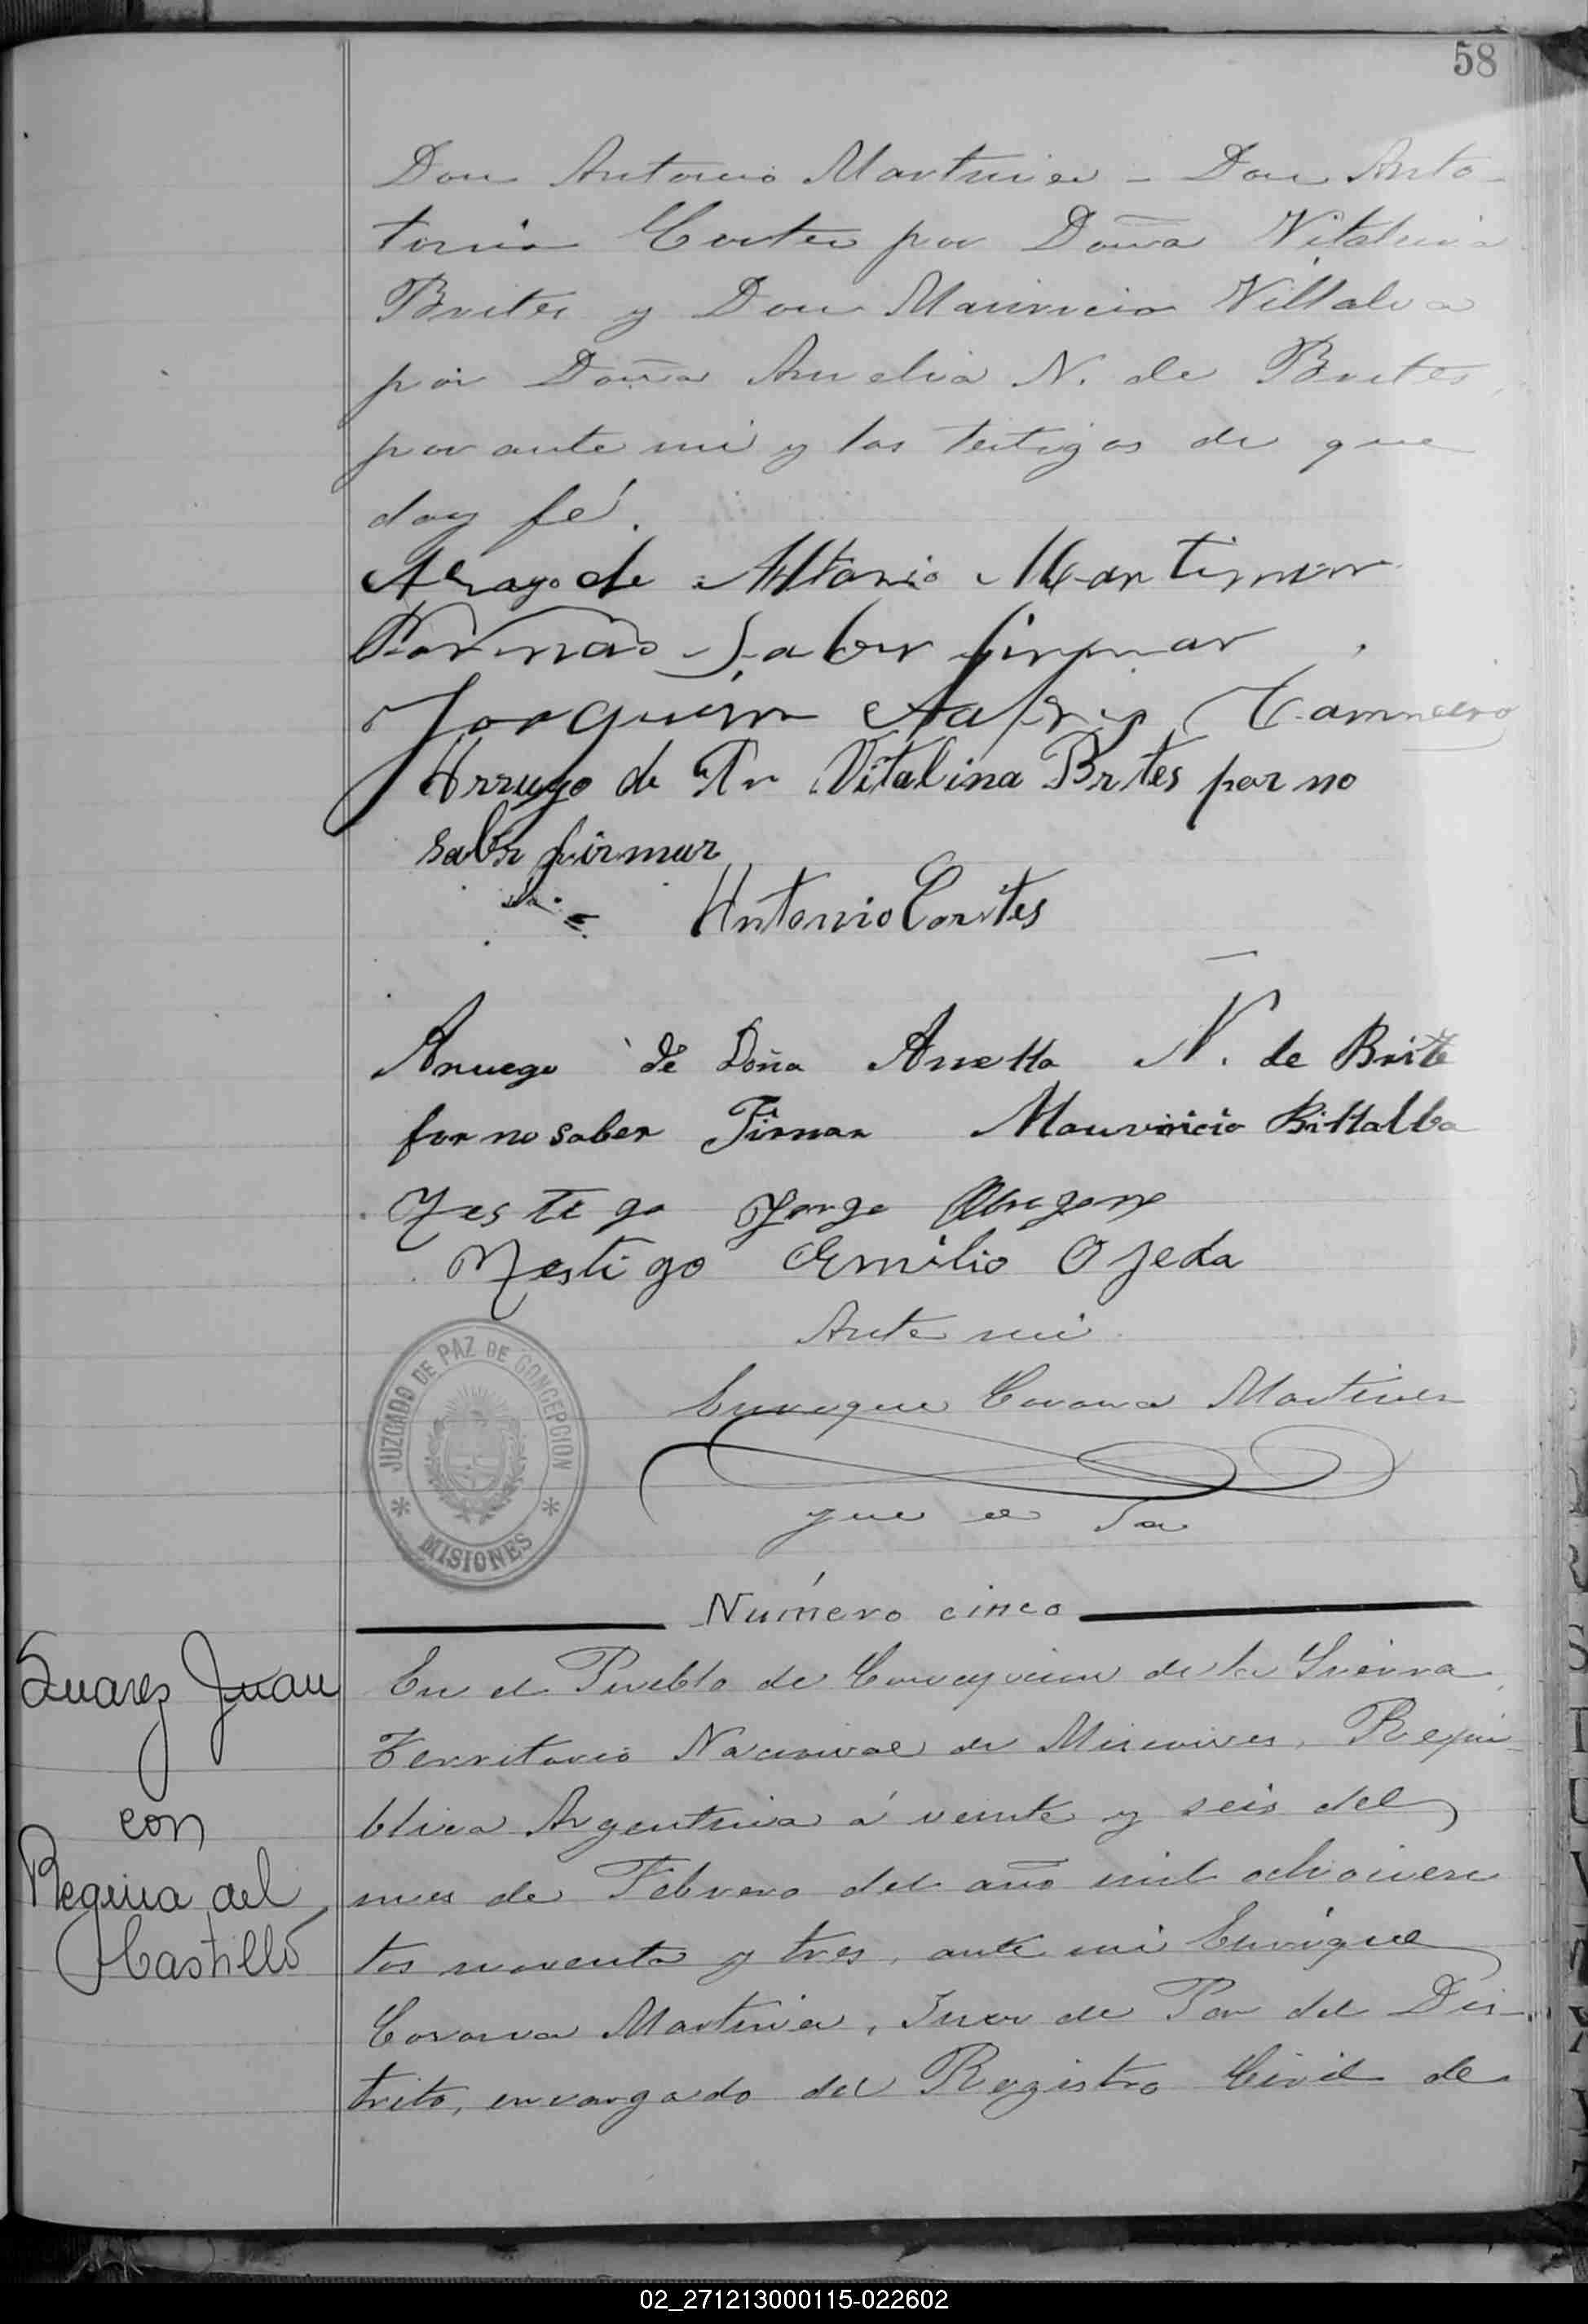 58
Don Antonio Martinez - Don Anto-
tonio Cortes por Doña Vitalina
Brites y Don Mauricio Villalva
por Doña Aurelia N. de Brites,
por ante mi y los testigos de que
doy fé.
Arrayo de Antonio Martines
Por no Saber firmar
Joaquim
Arruygo de Vitalina Brtes por no
saber firmar
Antonio Cortes
Arruego de Doña Anella N. de Brite
por no saber Firmar Mauricio Billalba
Testigo Jorge Obregon
Testigo Emilio Ojeda
Ante mi
Enrique Corona Martinez
Juez de Paz
JUZGADO DE PAZ DE CONCEPCION
* MISIONES *
Número cinco
Suarez Juan
con
Regina del
Castillo
En el Pueblo de Concepcion de la Sierra,
Territorio Nacional de Misiones, Repu-
blica Argentina á veinte y seis del
mes de Febrero del año mil ochocien
tos noventa y tres, ante mi Enrique
Corona Martinez, Juez de Paz del Dis-
trito, encargado del Registro Civil de
02_271213000115-022602